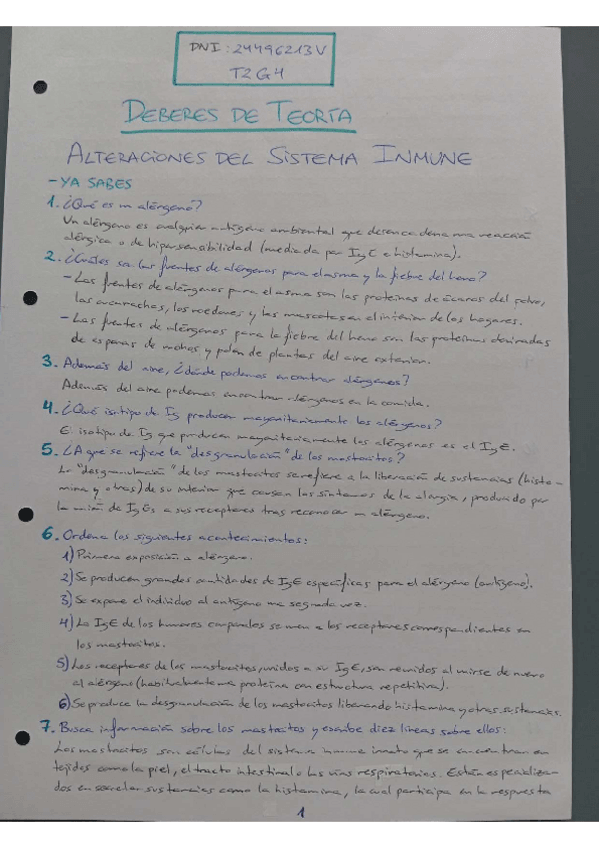 DNI: 24496213V
T2 G4
DEBERES DE TEORÍA
ALTERACIONES DEL SISTEMA INMUNE
- YA SABES
1. ¿Qué es un alérgeno?
Un alérgeno es cualquier antígeno ambiental que desencadena una reacción
alérgica o de hipersensibilidad (mediada por IgE e histamina).
2. ¿Cuáles son las fuentes de alérgenos para el asma y la fiebre del heno?
- Las fuentes de alérgenos para el asma son las proteínas de ácaros del polvo,
las cucarachas, los roedores y las mascotas en el interior de los hogares.
- Las fuentes de alérgenos para la fiebre del heno son las proteínas derivadas
de esporas de mohos y polen de plantas del aire exterior.
3. Además del aire, ¿dónde podemos encontrar alérgenos?
Además del aire podemos encontrar alérgenos en la comida.
4. ¿Qué isotipo de Ig producen mayoritariamente los alérgenos?
El isotipo de Ig que producen mayoritariamente los alérgenos es el IgE.
5. ¿A que se refiere la "desgranulación" de los mastocitos?
La "desgranulación" de los mastocitos se refiere a la liberación de sustancias (hista-
mina y otras) de su interior que causan los síntomas de la alergia, producido por
la unión de IgEs a sus receptores tras reconocer un alérgeno.
6. Ordena los siguientes acontecimientos:
1) Primera exposición a alérgeno.
2) Se producen grandes cantidades de IgE específicas para el alérgeno (antígeno).
3) Se expone el individuo al antígeno una segunda vez.
4) La IgE de los humores corporales se unen a los receptores correspondientes en
los mastocitos.
5) Los receptores de los mastocitos, unidos a su IgE, son reunidos al unirse de nuevo
al alérgeno (habitualmente una proteína con estructura repetitiva).
6) Se produce la desgranulación de los mastocitos liberando histamina y otras sustancias.
7. Busca información sobre los mastocitos y escribe diez líneas sobre ellos:
Los mastocitos son células del sistema inmune innato que se encuentran en
tejidos como la piel, el tracto intestinal o las vías respiratorias. Están especializa-
dos en secretar sustancias como la histamina, la cual participa en la respuesta
1